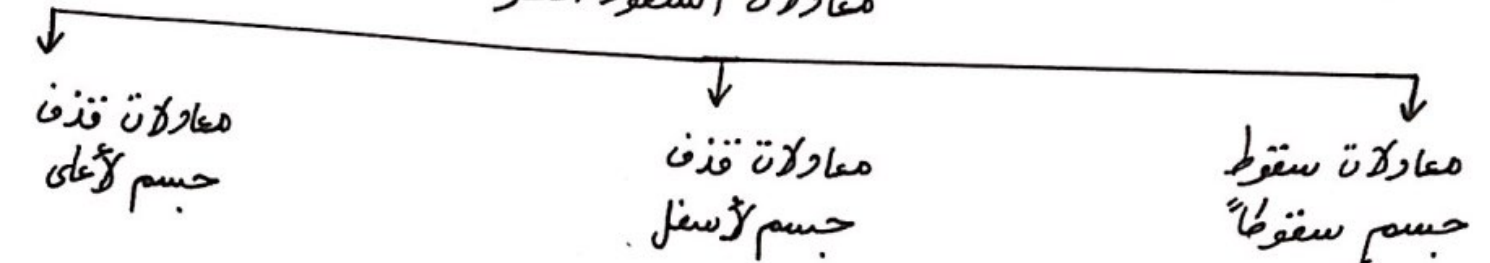 معادلات السقوط
معادلات سقوط
جسم سقوطاً
معادلات قذف
جسم لأسفل
معادلات قذف
جسم لأعلى